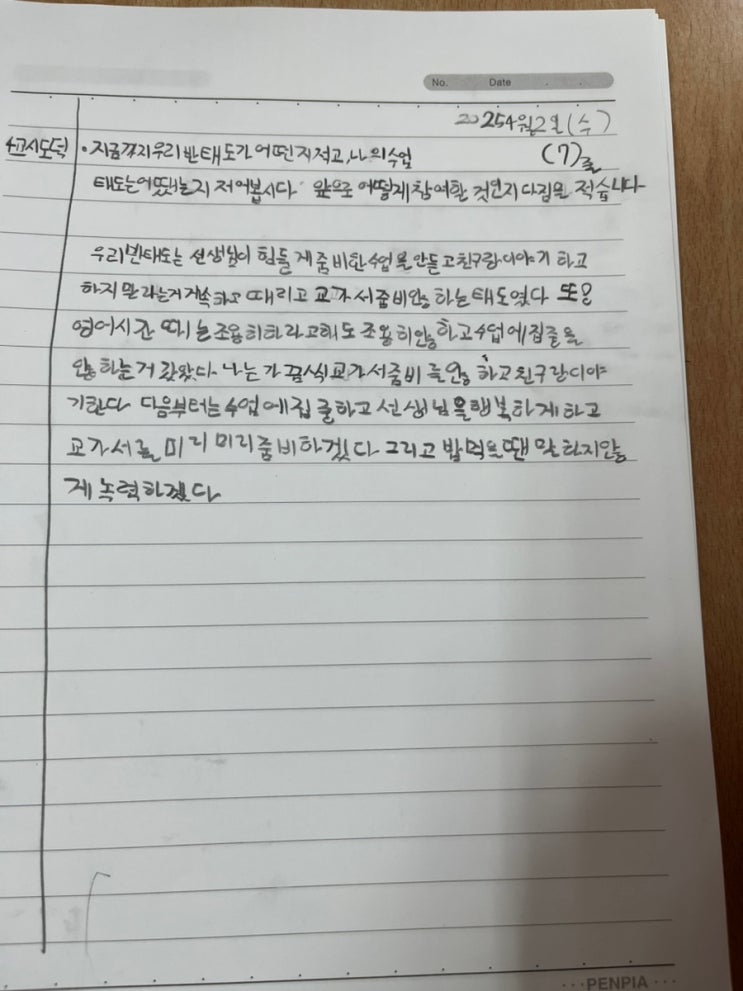 No. Date
2025 4월 2일 (수)
· 지금까지 우리 반 태도가 어떤지 적고, 나의 수업 (7)줄
태도는 어땠는지 적어봅시다. 앞으로 어떻게 참여할 것인지 다짐을 적습니다
우리반태도는 선생님이 힘들게 준비한 수업을 안듣고 친구랑 이야기 하고
하지 말라는거 계속 하고 때리고 교가서준비안하는 태도였다 또
영어시간 때는 조용히하라고해도 조용히안하고 수업에 집중을
안하는거 같았다. 나는 가끔식 교가서준비를안하고 친구랑 이야
기한다 다음부터는 수업에 집중하고 선생님을 행복하게 하고
교가서를 미리 미리 준비하겠다 그리고 밥 먹을 땐 말 하지않
게 노력하겠다
PENPIA